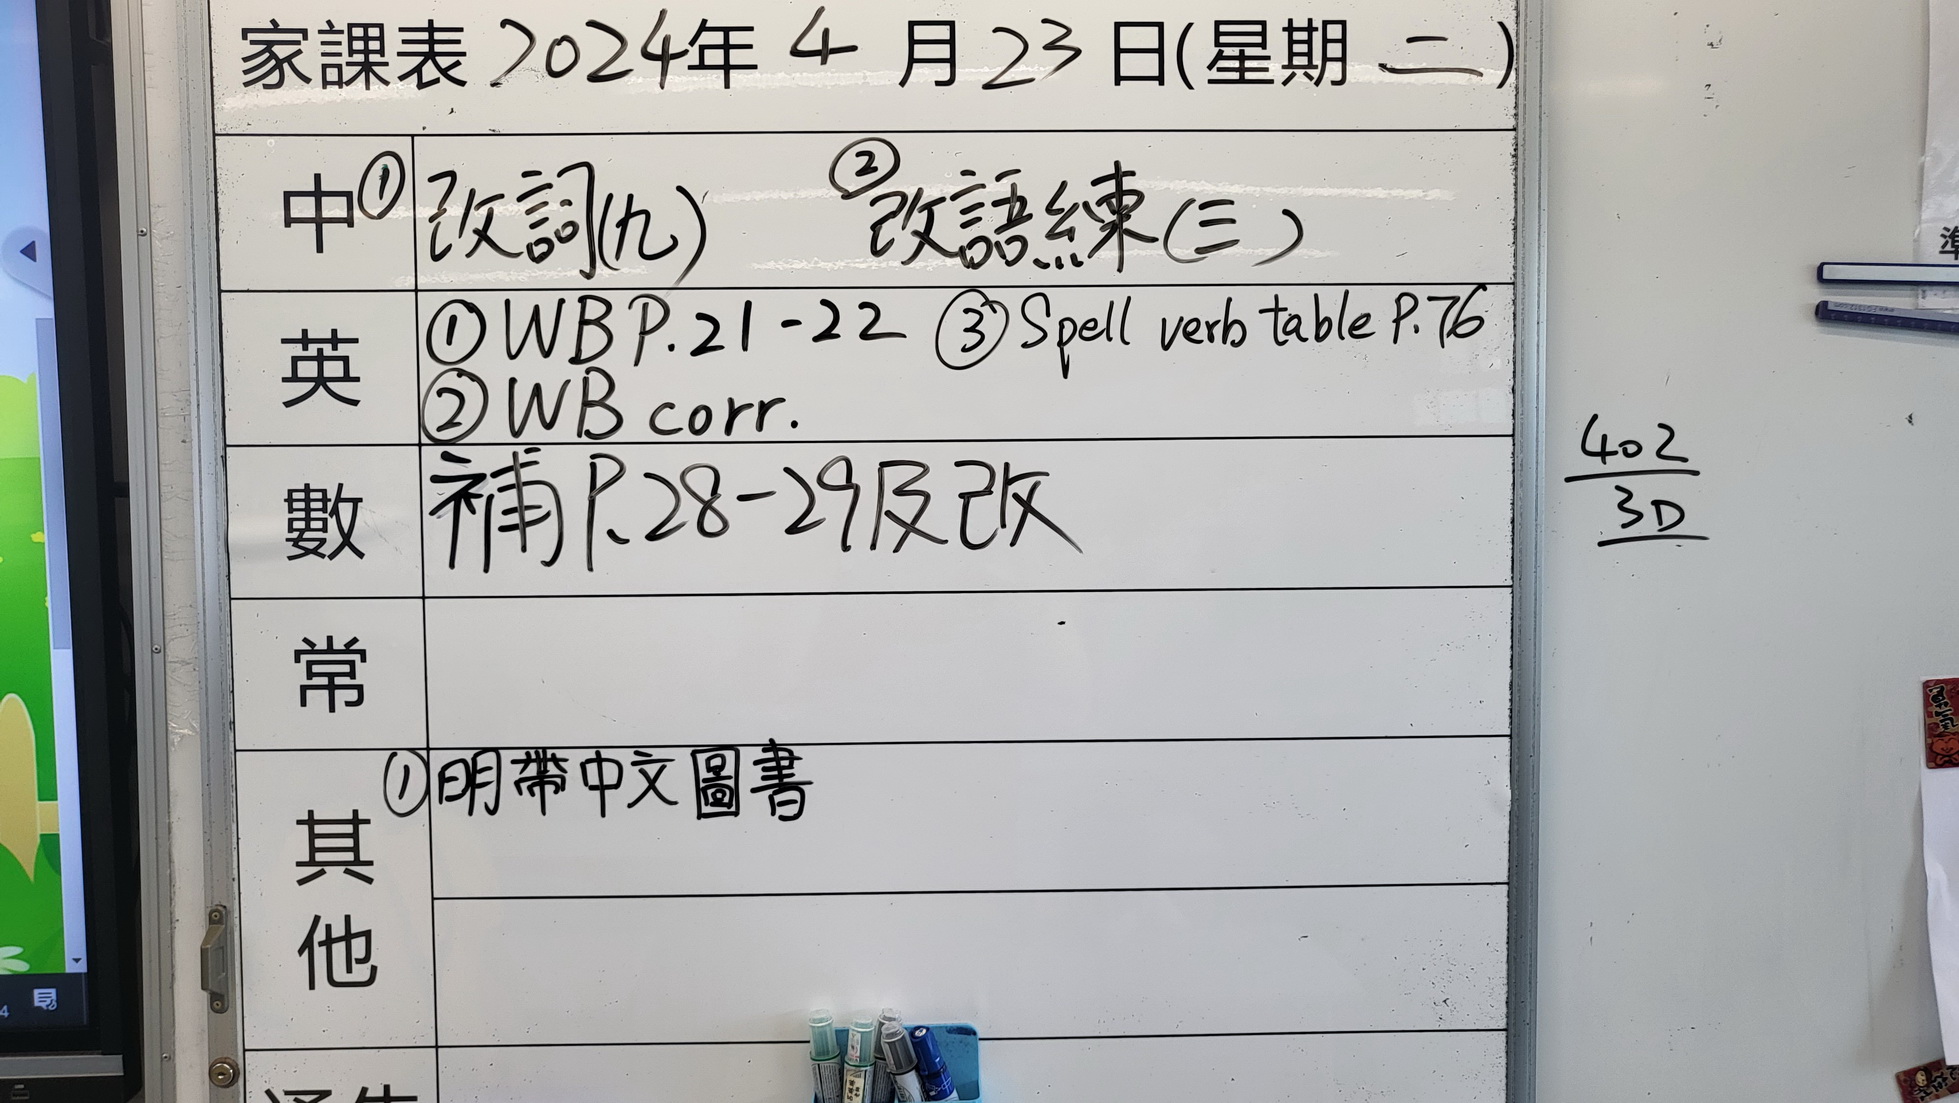 家課表 2024年 4 月 23 日(星期 二 )
中 ① 改詞(九) ② 改語練(三)
英 ① WB P.21-22 ③ Spell verb table P.76
② WB corr.
數 補 P.28-29及改
常
其他 ① 明帶中文圖書
402
3D